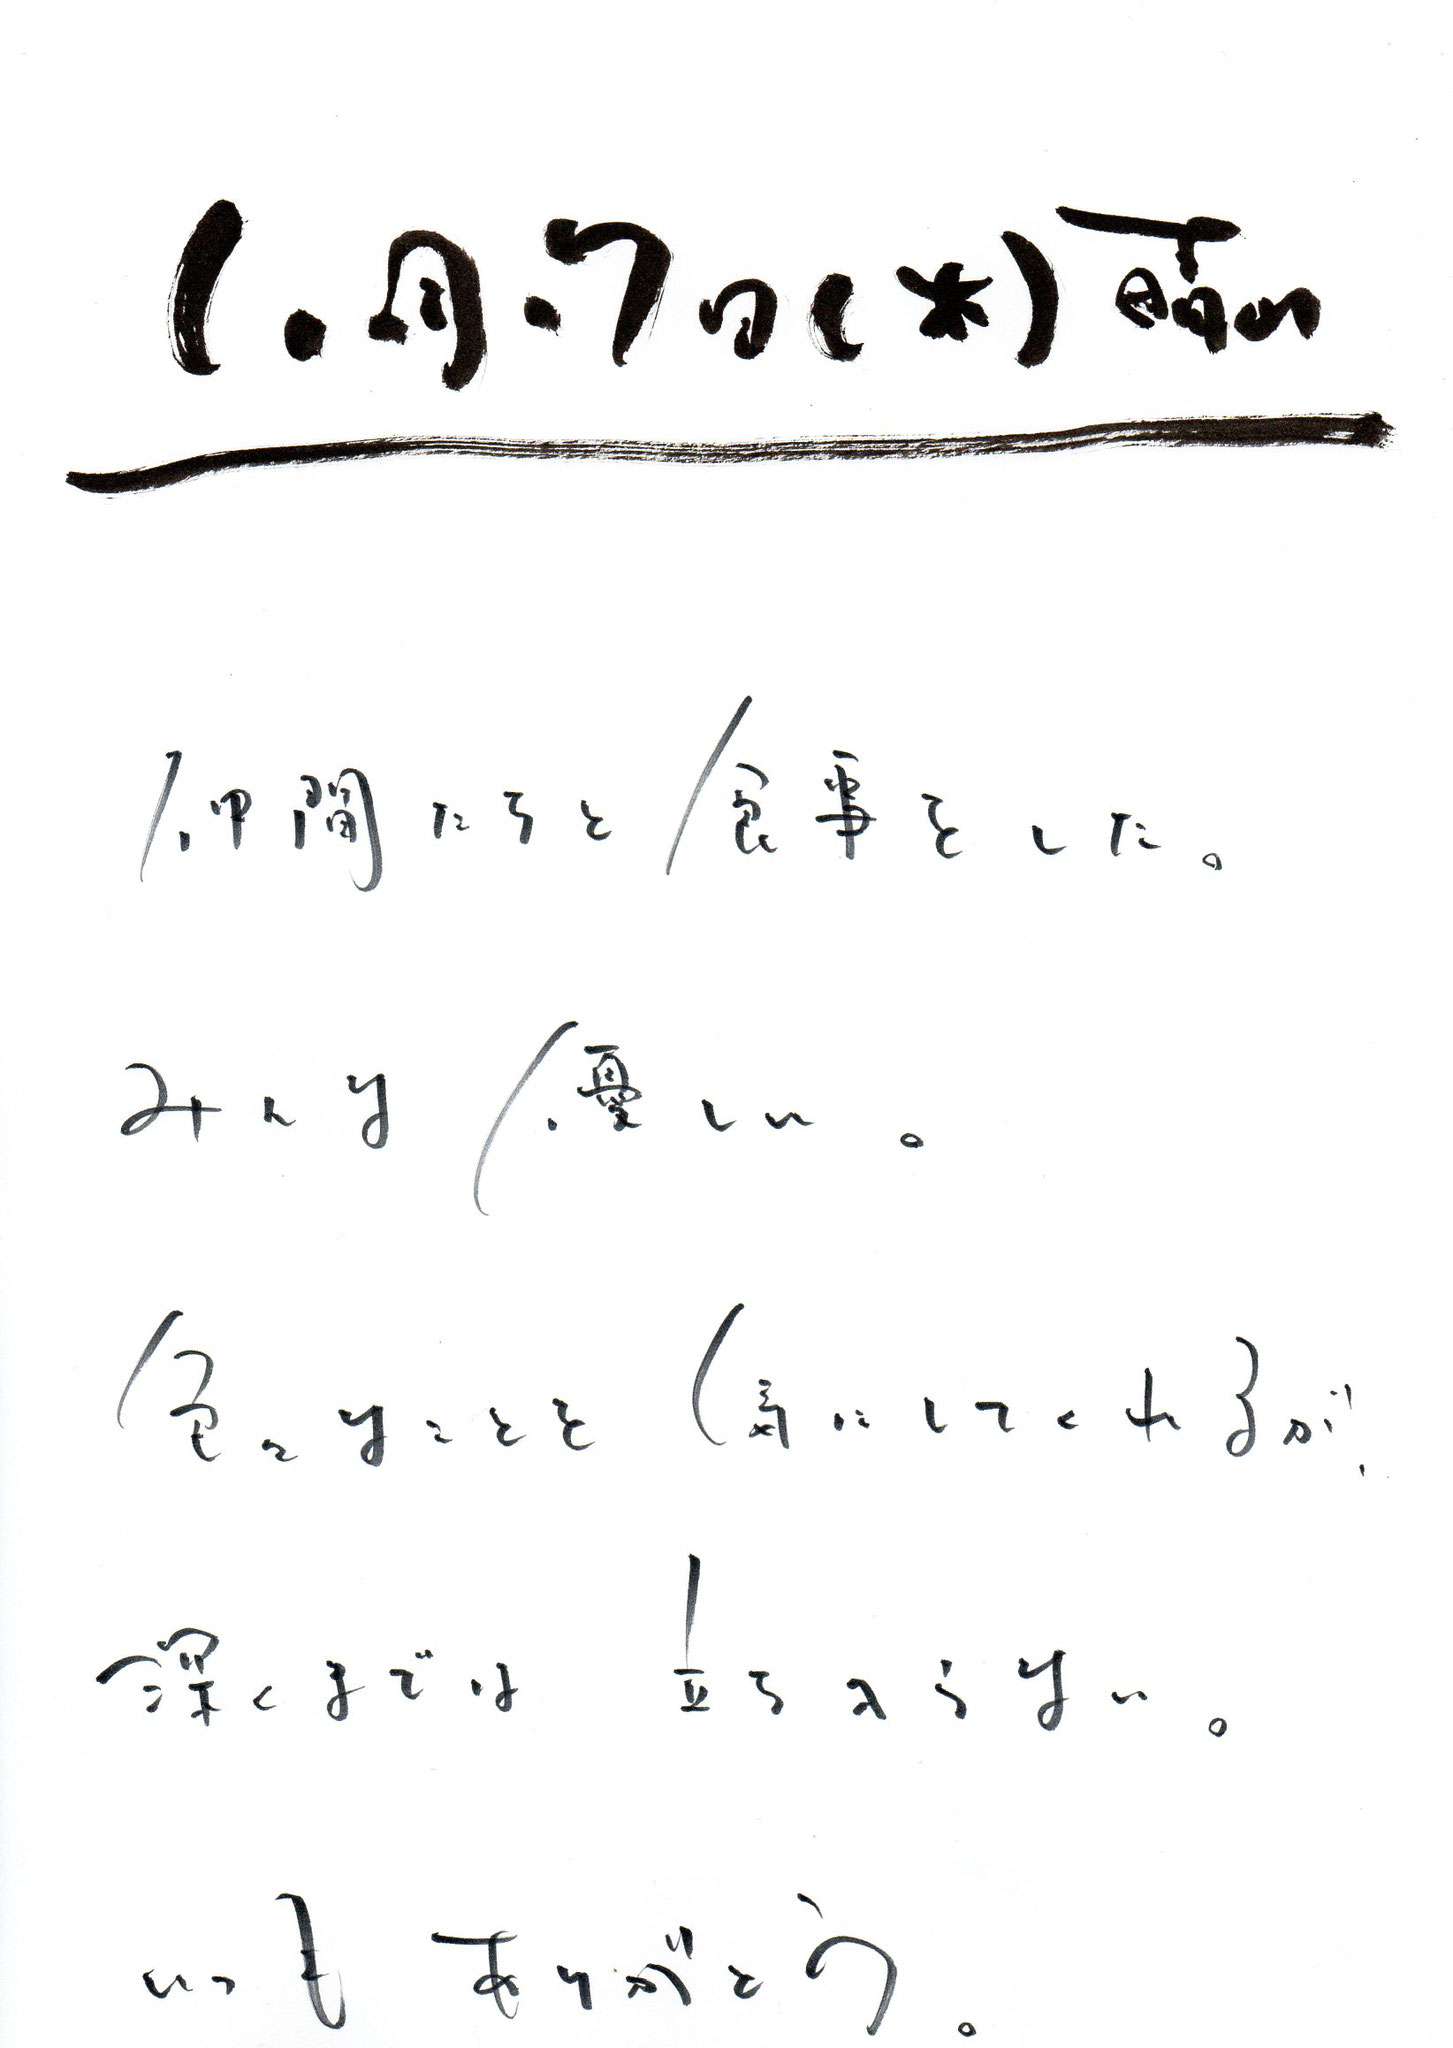 1.月.7日(木)
仲間たちと食事をした。
みんな優しい。
色々なことを気にしてくれるが、
深くまでは立ち入らない。
いつもありがとう。